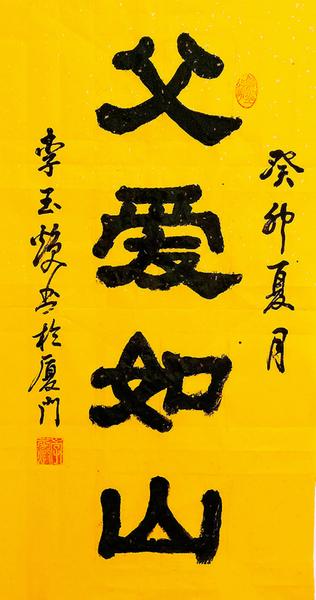 癸卯夏月
父爱如山
李玉书於厦门